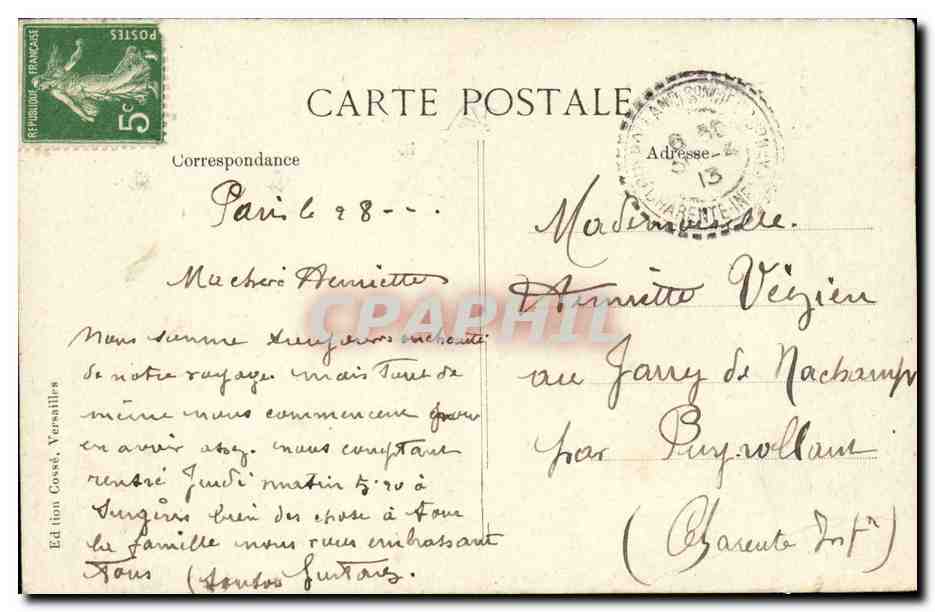 REPUBLIQUE FRANÇAISE
POSTES
5c
CARTE POSTALE
Correspondance
Adresse
13
CHARENTE INFRE
Paris le 28
Ma chère Henriette
Nous somme toujours enchanté
de notre voyage mais tout de
même nous commencent pour
en avoir assez. nous comptant
rentré Jeudi matin 5.20 à
Surgères bien des chose à tout
la famille nous vous embrassant
tous (tonton Gustave.
Mademoiselle.
Henriette Vézien
au Jarry de Nachamps
par Puyrollant
(Charente Infre)
Ed tion Cossé, Versailles
CPAPHIL